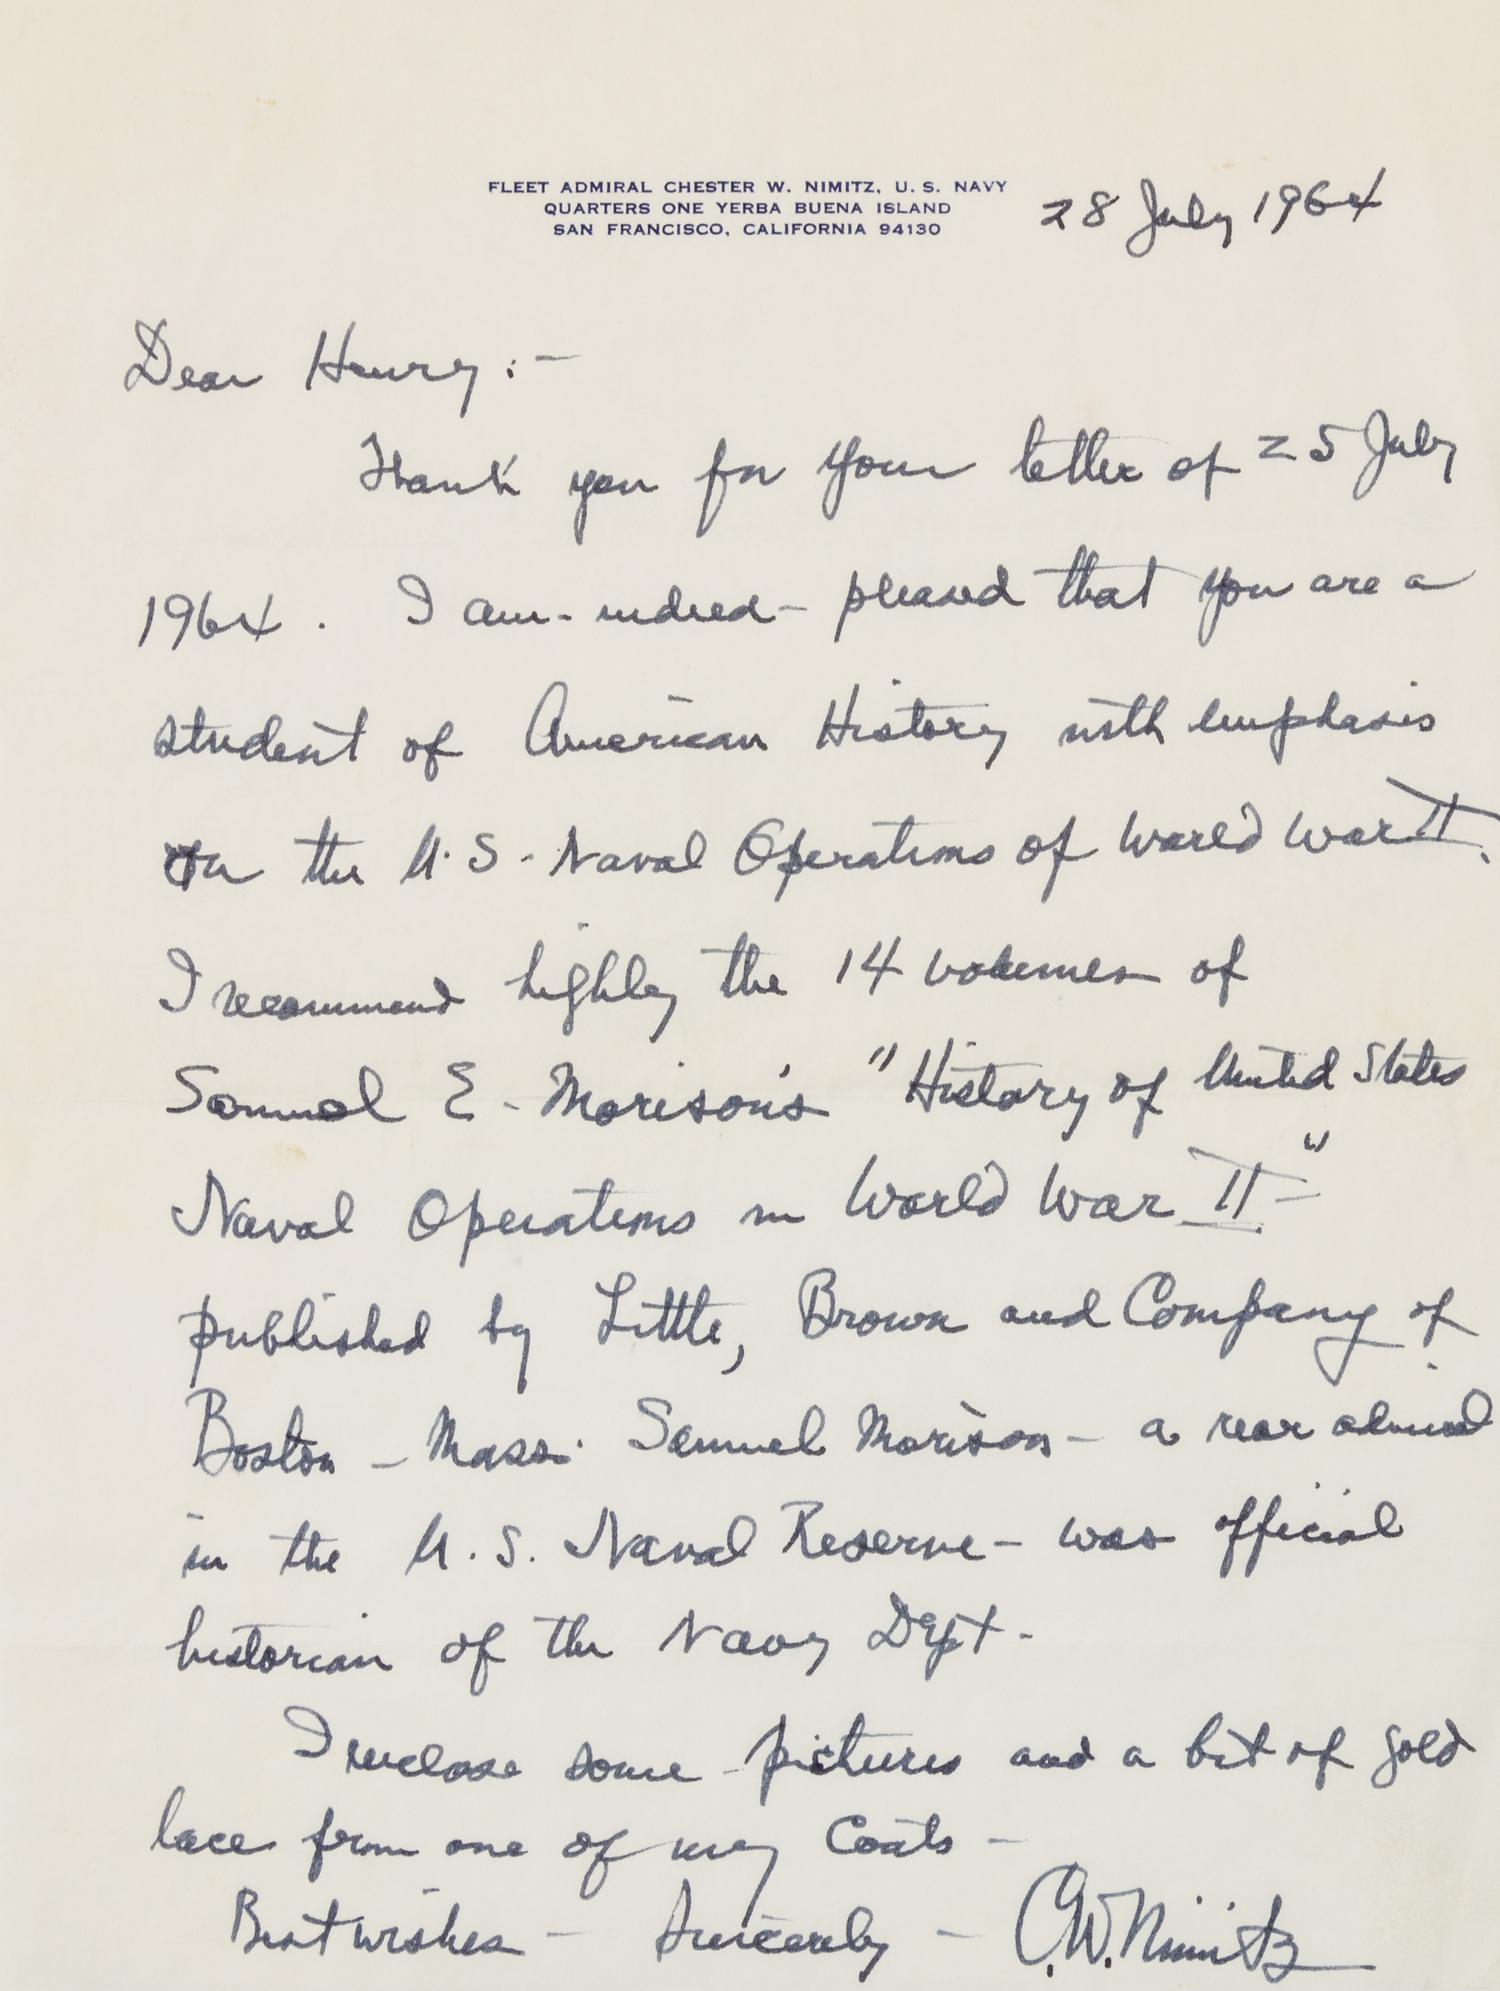 FLEET ADMIRAL CHESTER W. NIMITZ, U. S. NAVY
QUARTERS ONE YERBA BUENA ISLAND
SAN FRANCISCO, CALIFORNIA 94130
28 July 1964
Dear Henry :-
Thank you for your letter of 25 July
1964. I am - indeed - pleased that you are a
student of American History with emphasis
on the U.S. Naval Operations of World War II.
I recommend highly the 14 volumes of
Samuel E. Morison's "History of United States
Naval Operations in World War II"-
published by Little, Brown and Company of
Boston - Mass. Samuel Morison - a rear admiral
in the U.S. Naval Reserve - was official
historian of the Navy Dept.
I enclose some pictures and a bit of gold
lace from one of my Coats -
Best wishes - Sincerely - C.W. Nimitz